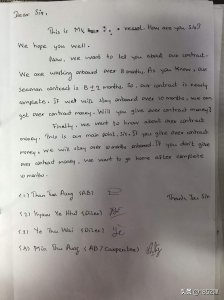 Dear Sir,
This is MV vessel. How are you Sir?
We hope you well.
Now, we want to let you about our contract.
We are working onboard over 8 months. As you know, our
seaman contract is 8±2 months. So, our contract is nearly
complete. If we will stay onboard over 10 months, we can
get over contract money. Will you give over contract money?
Finally, we want to know about over contract
money. This is our main point, Sir. If you give over contract
money, we will stay over 10 months onboard. If you don't give
over contract money, we want to go home after complete
10 months.
(1) Than Tun Aung (AB)
Thanks Sir
(2) Kyaw Ye Htut (Oiler)
(3) Ye Thu Wai (Oiler)
(4) Min Thu Aung (AB / Carpenter)